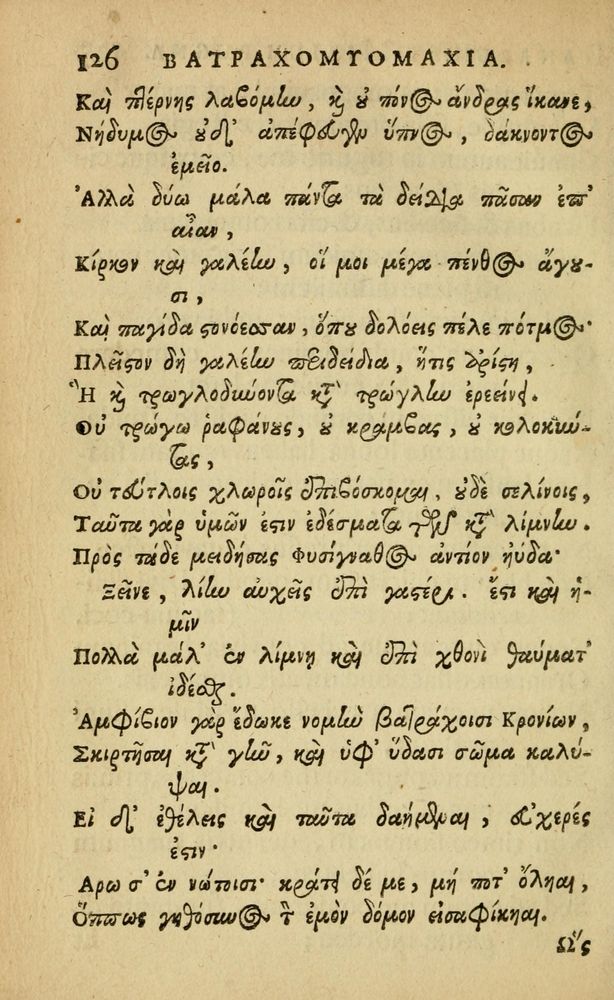 126 ΒΑΤΡΑΧΟΜΥΟΜΑΧΙΑ.
Καὶ πτέρνης λαβόμην, καὶ οὐ πόνος ἄνδρας ἵκανε,
Νήδυμος οὐδ' ἀπέφευγεν ὕπνος, δάκνοντος
ἐμεῖο.
Ἀλλὰ δύω μάλα πάντα τὰ δείδια πᾶσαν ἐπ'
αἶαν,
Κίρκον καὶ γαλέην, οἵ μοι μέγα πένθος ἄγου-
σι,
Καὶ παγίδα στονόεσσαν, ὅπου δολόεις πέλε πότμος·
Πλεῖστον δὴ γαλέην περιδείδια, ἥτις ἀρίστη,
Ἣ καὶ τρωγλοδύνοντα κατὰ τρώγλην ἐρεείνει.
Οὐ τρώγω ῥαφάνους, οὐ κράμβας, οὐ κολοκύν-
τας,
Οὐ τεύτλοις χλωροῖς ἐπιβόσκομαι, οὐδὲ σελίνοις,
Ταῦτα γὰρ ὑμῶν ἐστιν ἐδέσματα τῶν κατὰ λίμνην.
Πρὸς τάδε μειδήσας Φυσίγναθος ἀντίον ηὔδα·
Ξεῖνε, λίην αὐχεῖς ἐπὶ γαστέρι. ἔστι καὶ ἡ-
μῖν
Πολλὰ μάλ' ἐν λίμνῃ καὶ ἐπὶ χθονὶ θαύματ'
ἰδέσθαι.
Ἀμφίβιον γὰρ ἔδωκε νομὴν βατράχοισι Κρονίων,
Σκιρτῆσαι κατὰ γῆν, καὶ ὑφ' ὕδασι σῶμα καλύ-
ψαι.
Εἰ δ' ἐθέλεις καὶ ταῦτα δαήμεναι, εὐχερές
ἐστιν·
Αρω σ' ἐν νώτοισι· κράτει δέ με, μή ποτ' ὄληαι,
Ὅππως γηθόσυνος τὸν ἐμὸν δόμον εἰσαφίκηαι.
Ὣς